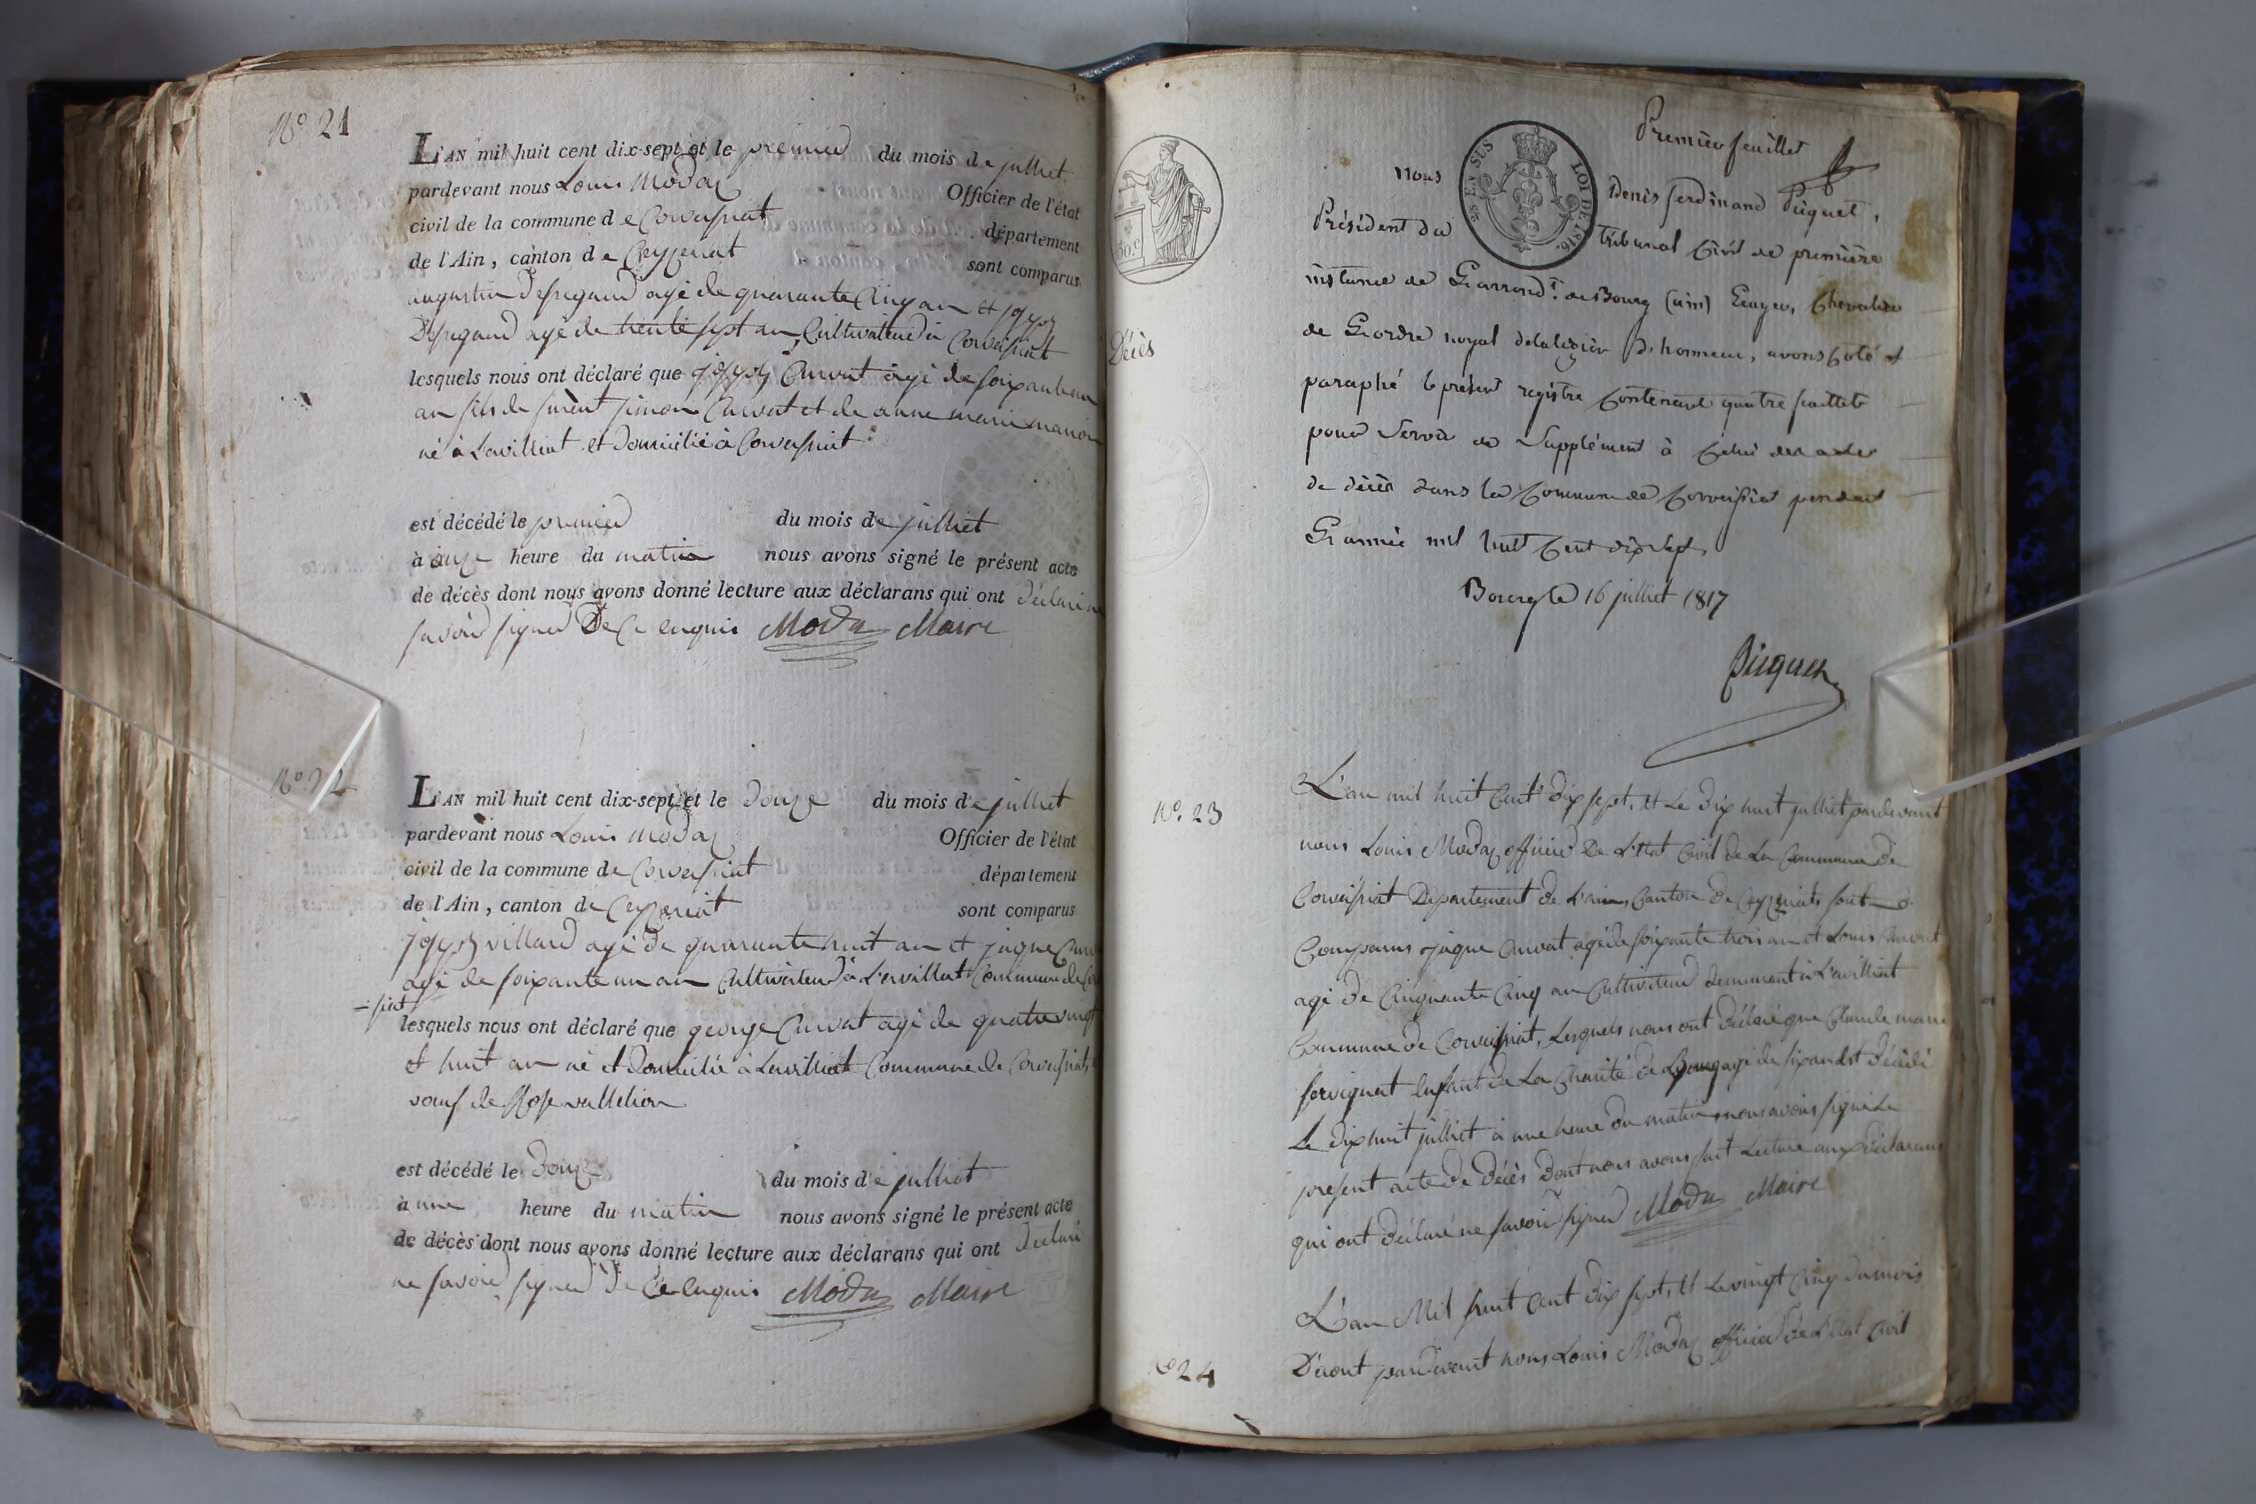 No. 21
L'AN mil huit cent dix-sept et le premier du mois de julliet
pardevant nous Louis Modas Officier de l'état
civil de la commune de Corveissiat département
de l'Ain, canton de Ceyzeriat sont comparus
augustin Desrigaud agé de quarante Cinq an et joseph
Desrigaud agé de trente sept an, Cultivateur à Corveissiat
lesquels nous ont déclaré que joseph Curvat agé de soixante un
an fils de Simon Curvat et de anne marie
né à Lavilliat et domicilié à Corveissiat
est décédé le premier du mois de julliet
à onze heure du matin nous avons signé le présent acte
de décès dont nous avons donné lecture aux déclarans qui ont déclaré ne
savoir signer De Ce enquis Modas Maire
No. 22
L'AN mil huit cent dix-sept et le douze du mois de julliet
pardevant nous Louis Modas Officier de l'état
civil de la commune de Corveissiat département
de l'Ain, canton de Ceyzeriat sont comparus
joseph villard agé de quarante huit an et jaque
agé de soixante un an Cultivateur à Lavilliat Commune de
-siat
lesquels nous ont déclaré que george Curvat agé de quatre vingt
et huit an né et domicilié à Lavilliat Commune de Corveissiat
voeuf de Rose
est décédé le douze du mois de julliet
à une heure du matin nous avons signé le présent acte
de décès dont nous avons donné lecture aux déclarans qui ont déclaré
ne savoir signer de Ce enquis Modas Maire
Premier feuillet
nous Denis ferdinand Picquet,
Président du tribunal Civil de première
instance de L'arrondt. de Bourg (ain) Ecuyer, Chevalier
de L'ordre royal de la légion d'honneur, avons Coté et
paraphé le présent registre Contenant quatre feuillets
pour Servir de Supplément à Celui des actes
de décès dans la Commune de Corveissiat pendant
L'année mil huit Cent dix sept.
Bourg le 16 juillet 1817
Picquet
EN SUS
LOI DE 1816.
50.c
Décès
No. 23
L'an mil huit Cent dix sept, et Le dix huit julliet pardevant
nous Louis Modas officier De L'état Civil de La Commune De
Corveissiat Departement de L'ain, Canton de Ceyzeriat, sont
Comparus jaque Curvat agé de soixante trois an et Louis Curvat
agé de Cinquante Cinq an Cultivateur demeurant à Lavilliat
Commune de Corveissiat, Lesquels nous ont déclaré que Claude marie
servignat enfant de La Charité de Bourg agé de six an est décédé
Le dix huit julliet à une heure du matin, nous avons signé Le
present acte de Décès Dont nous avons fait Lecture aux Déclarans
qui ont déclaré ne savoir signer Modas Maire
No 24
L'an Mil huit Cent dix sept, et Le vingt Cinq du mois
D'aout pardevant nous Louis Modas officier de L'état Civil